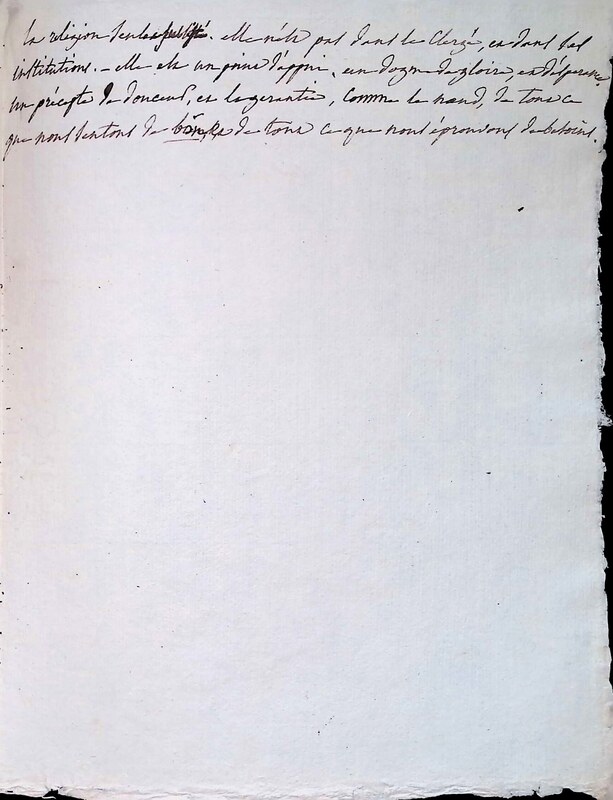 la religion seule subsiste. elle n'est pas dans le Clergé, ou dans ses
institutions. – elle est un point d'appui, un dogme de gloire, et d'espérance,
un précepte de douceur, et la garantie, comme le nœud, de tout ce
que nous sentons de de tout ce que nous éprouvons de besoins.